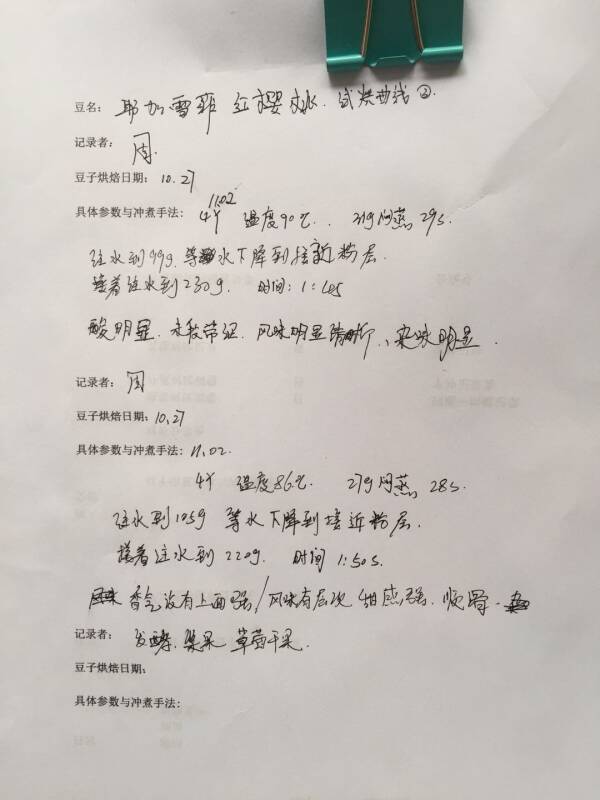 豆名: 耶加雪菲 红樱桃 试烘曲线②.
记录者: 周.
豆子烘焙日期: 10.27
11.02
具体参数与冲煮手法: 4Y 温度90℃. 31g闷蒸 29s.
注水到99g 等水下降到接近粉层.
接着注水到230g. 时间: 1:45
酸明显. 风味明显 杂味明显.
记录者: 周
豆子烘焙日期: 10.27
具体参数与冲煮手法: 11.02.
4Y 温度86℃. 27g闷蒸 28s.
注水到105g 等水下降到接近粉层.
接着注水到220g. 时间 1:50s.
香气没有上面强/风味有层次 甜感强. 顺滑.
记录者: 发酵. 浆果 草莓干果.
豆子烘焙日期:
具体参数与冲煮手法: